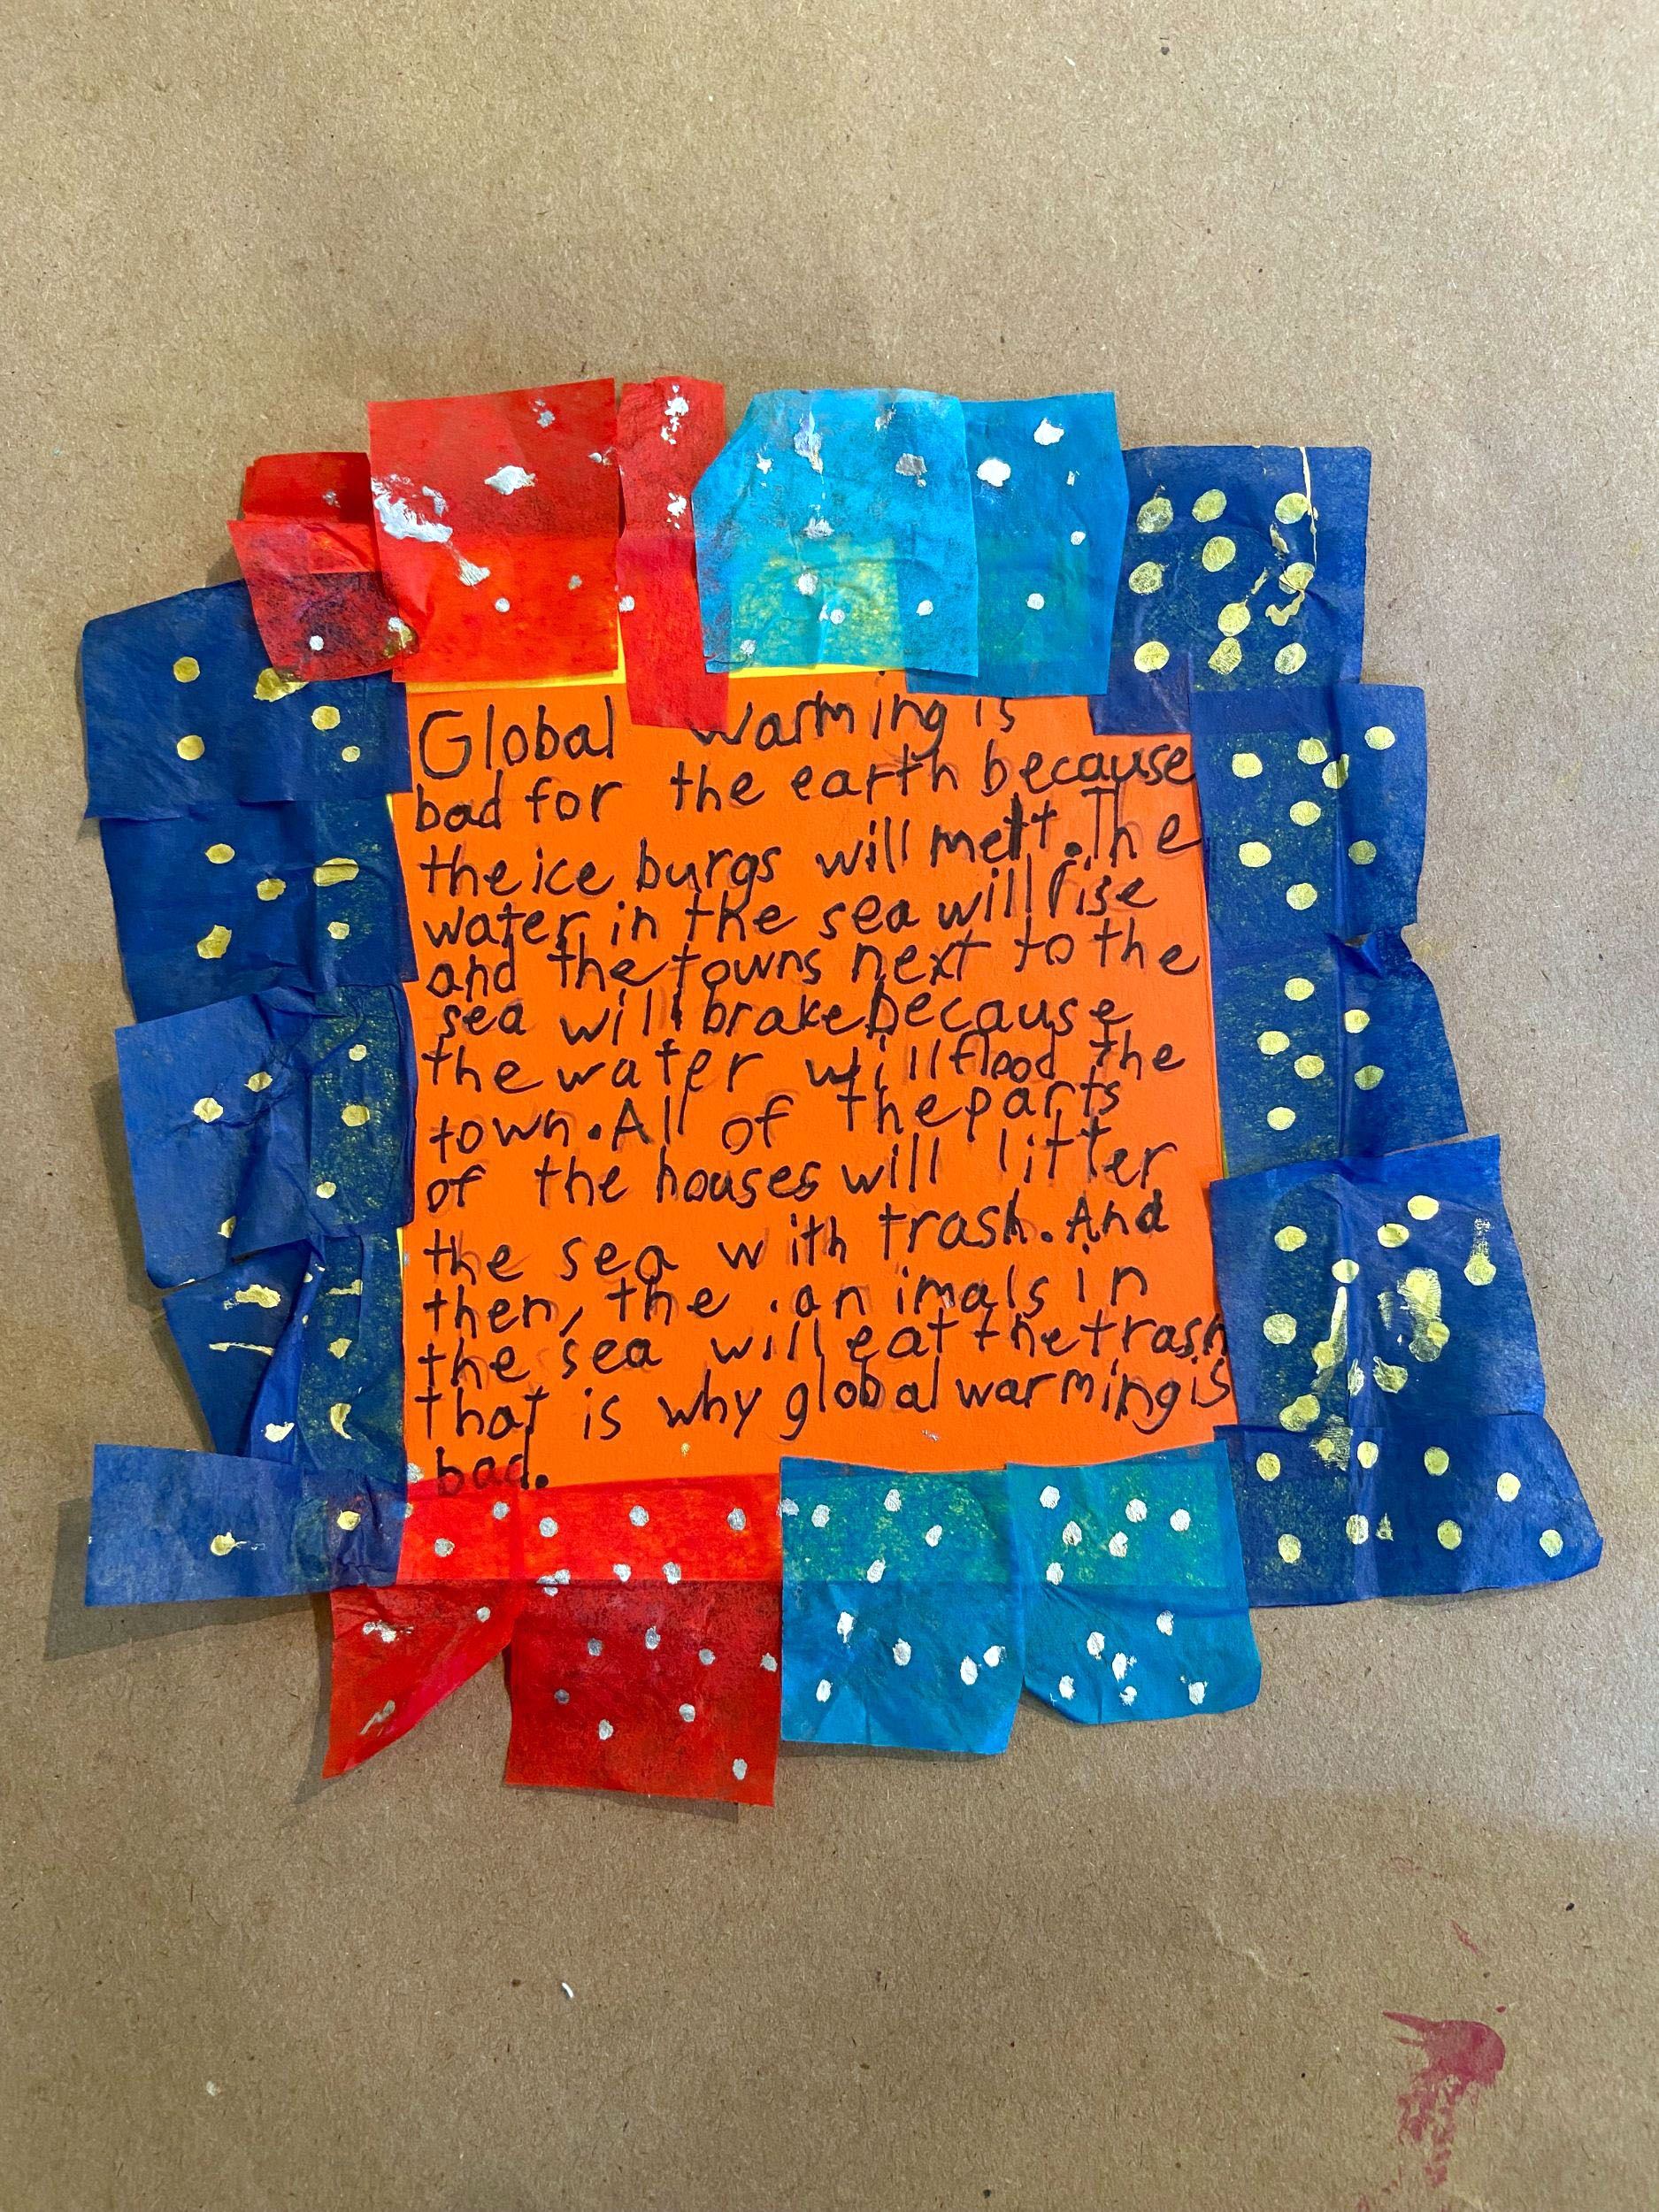 Global warming is
bad for the earth because
the ice burgs will melt. The
water in the sea will rise
and the towns next to the
sea will brake because
the water will flood the
town. All of the parts
of the houses will litter
the sea with trash. And
then, the animals in
the sea will eat the trash
that is why global warming is
bad.